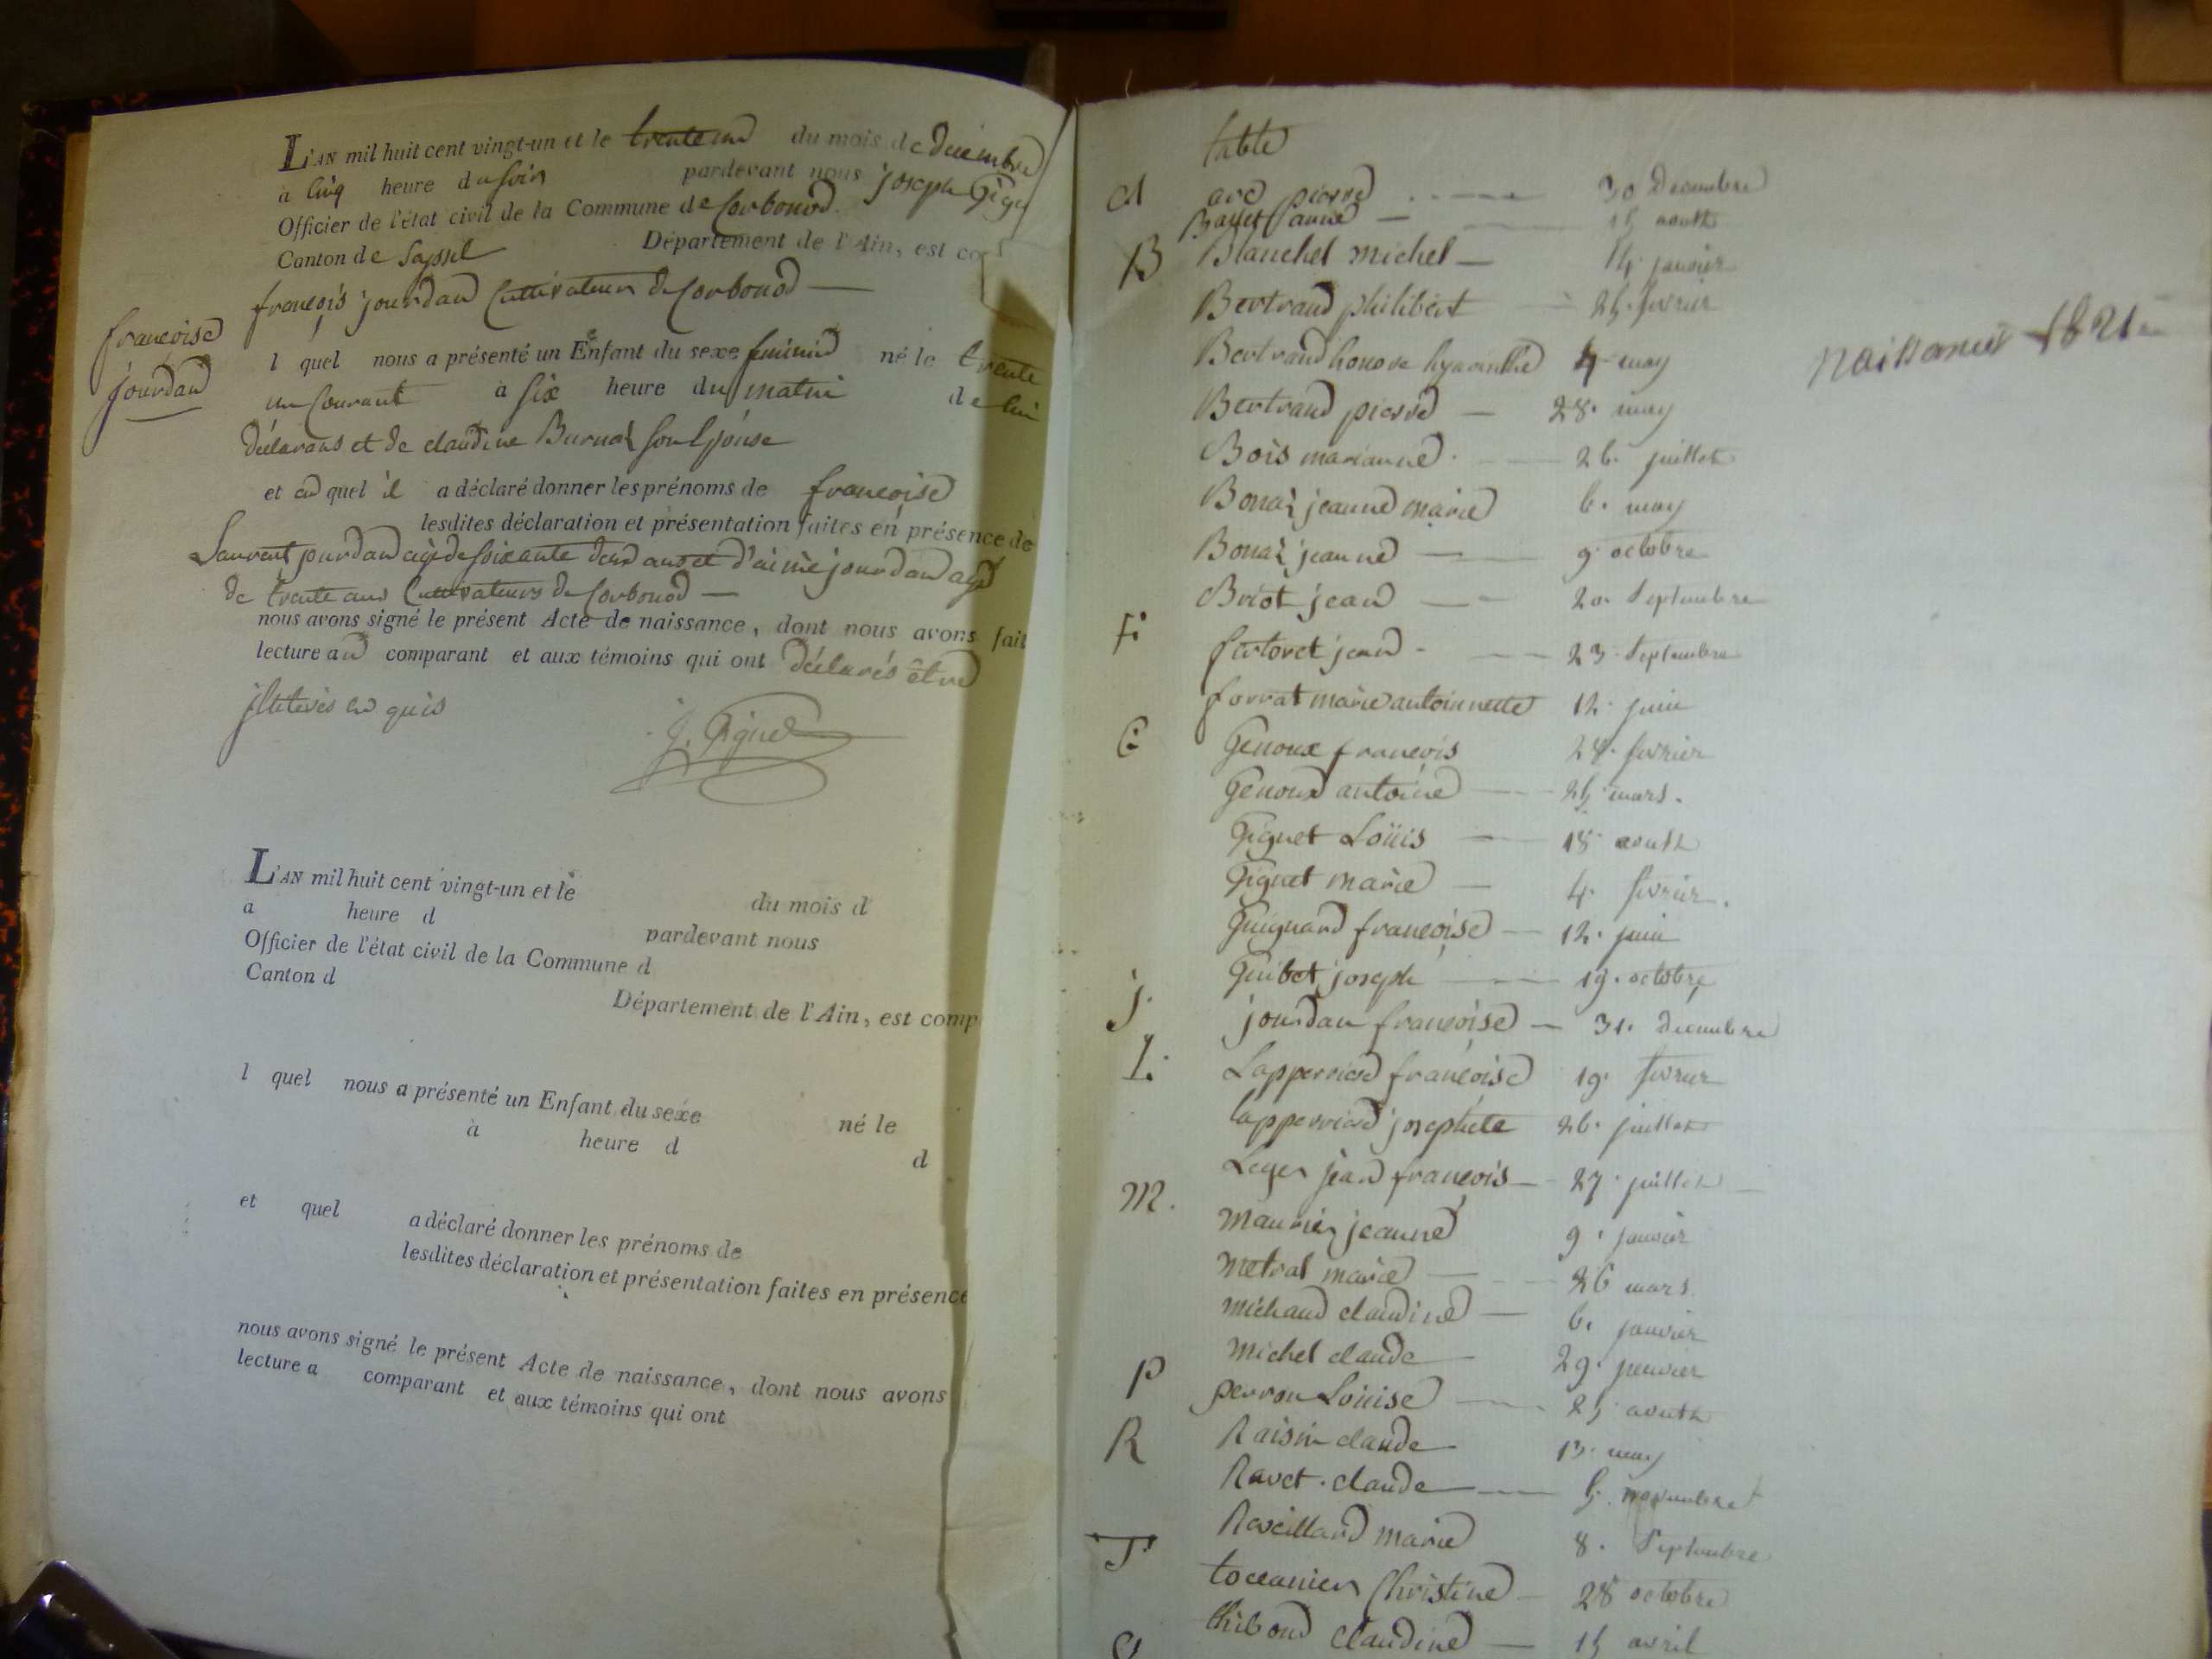 L'AN mil huit cent vingt-un et le trente un du mois de decembre
à cinq heure du soir pardevant nous joseph Gigu
Officier de l'état civil de la Commune de Corbonod
Canton de Seyssel Département de l'Ain, est co
françois jourdan Cultivateur de Corbonod
françoise
jourdan
l quel nous a présenté un Enfant du sexe feminin né le trente
un Courant à six heure du matin de lui
déclarans et de claudine Burnaz son Epouse
et au quel il a déclaré donner les prénoms de françoise
lesdites déclaration et présentation faites en présence de
Laurent jourdan agé de soixante deux ans et d'aimé jourdan agé
de trente ans Cultivateurs de Corbonod
nous avons signé le présent Acte de naissance, dont nous avons fait
lecture au comparant et aux témoins qui ont déclarés être
illiterés en quis
J. Gignet
L'AN mil huit cent vingt-un et le du mois d
a heure d pardevant nous
Officier de l'état civil de la Commune d
Canton d Département de l'Ain, est comp
l quel nous a présenté un Enfant du sexe né le
à heure d d
et quel a déclaré donner les prénoms de
lesdites déclaration et présentation faites en présence
nous avons signé le présent Acte de naissance, dont nous avons
lecture a comparant et aux témoins qui ont
table
A arc pierre 30 Decembre
Bavet anne 15 aoutt
B Blanchet michel 14 janvier
Bertrand philibert 25 fevrier
Bertrand honore hyacinthe 4 may
Naissances 1821
Bertrand pierre 28. may
Bois marianne 26. juillet
Bonaz jeanne marie 6. may
Bonaz jeanne 9. octobre
Briot jean 20. Septembre
F. fertoret jean 23. Septembre
forrat marie antoinnette 12. juin
G Genoux françois 28. fevrier
Genoux antoine 25 mars.
Gignet Loüis 18 aoutt
Gignet marie 4. fevrier.
Guignard françoise 12. juin
Guibet joseph 19. octobre
j. jourdan françoise 31. Decembre
L. Lapperriere françoise 19. fevrier
lapperriere josephete 26. juillet
Leger jean françois 27. juillet
M. maurier jeanne 9. janvier
metral marie 26 mars.
michaud claudine 6. janvier
michel claude 29. janvier
P perron Loüise 25 aoutt
R Raisin claude 13. may
Ravet. claude 5. novembre
Reveillard marie 8. Septembre
T. toccanier Christine 28 octobre
thiboud claudine 15 avril